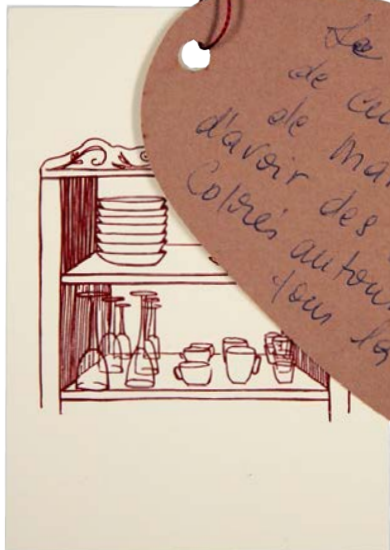 de
de Ma
d'avoir des
Colorés autou
tous les